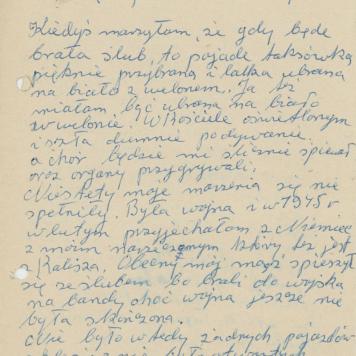 Kiedyś marzyłam, że gdy będę
brała ślub, to pojadę taksówką
pięknie przybraną i lalka ubrana
na biało z welonem. Ja też
miałam być ubrana na biało
w welonie. W Kościele oświetlonym
i szła dumnie podywanie.
a chór będzie mi ślicznie śpiewał
oraz organy przygrywali.
Niestety moje marzenia się nie
spełniły. Była wojna i w 1945 r
w lutym przyjechałam z Niemiec
z moim narzeczonym który też jest
z Kalisza. Obecny mój mąż śpieszył
się ze ślubem bo brali do wojska
na bandy choć wojna jeszcze nie
była skończona.
Nie było wtedy żadnych pojazdów